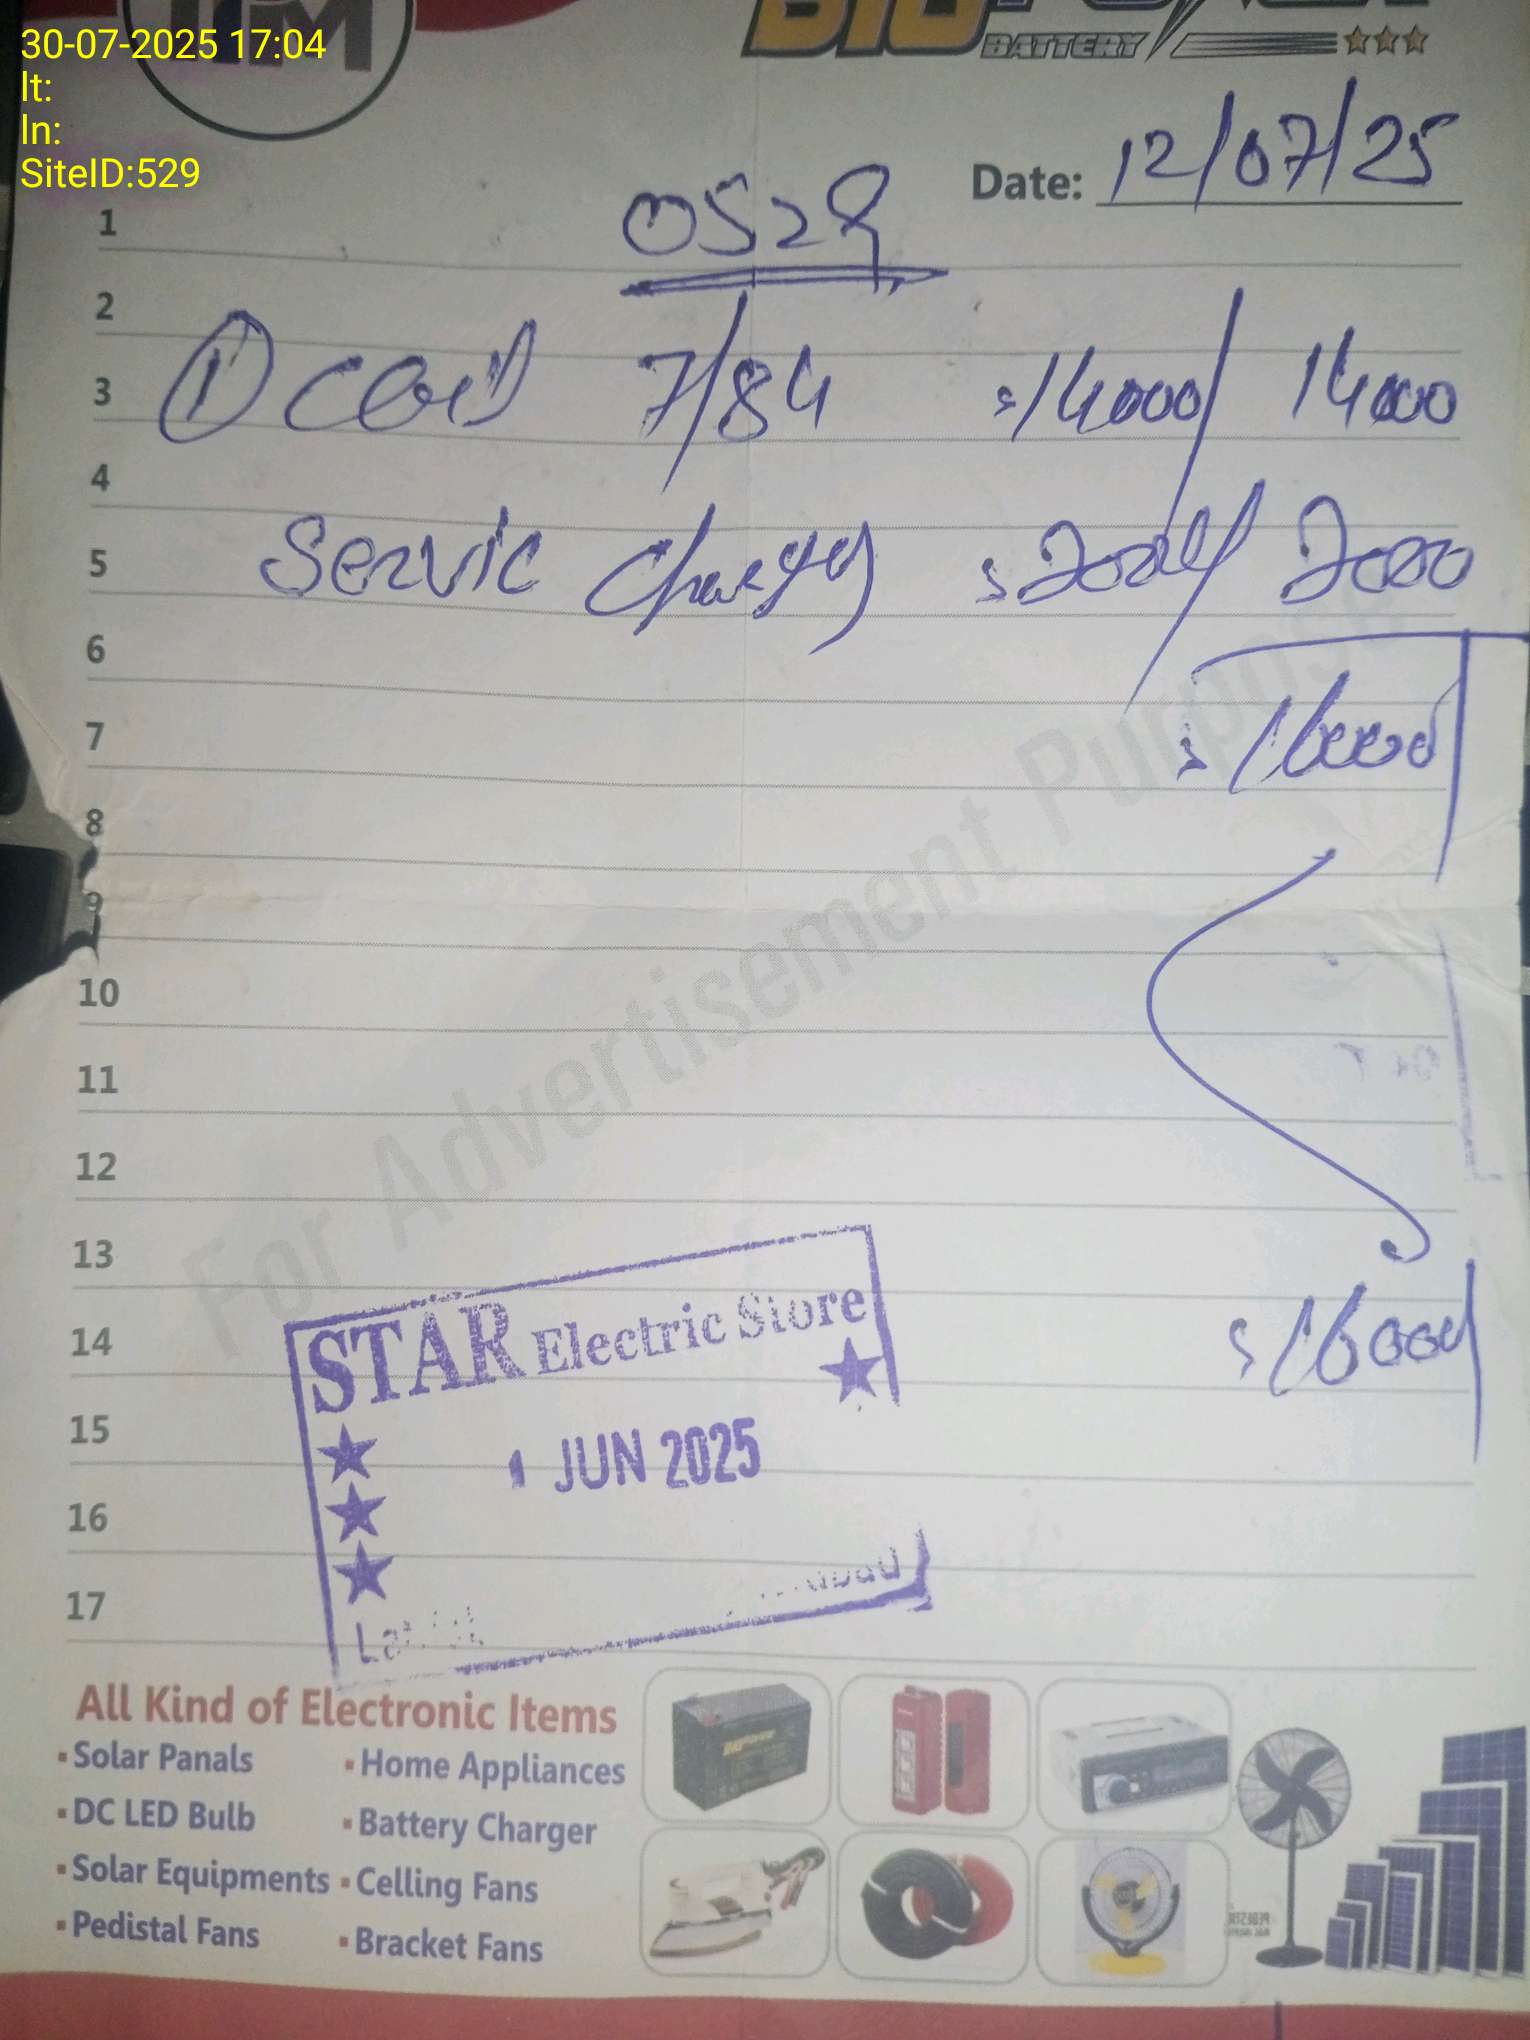 30-07-2025 17:04
lt:
ln:
SiteID:529
BATTERY
Date: 12/07/25
1 0529
2
3 ① Coil 7/84 :14000/ 14000
4
5 Servic Charges :2000/ 2000
6
7 :16000
8
9
10
11
12
13
14 :16000/
15
16
17
For Advertisement Purpose
STAR Electric Store
1 JUN 2025
All Kind of Electronic Items
▪Solar Panals ▪Home Appliances
▪DC LED Bulb ▪Battery Charger
▪Solar Equipments ▪Celling Fans
▪Pedistal Fans ▪Bracket Fans